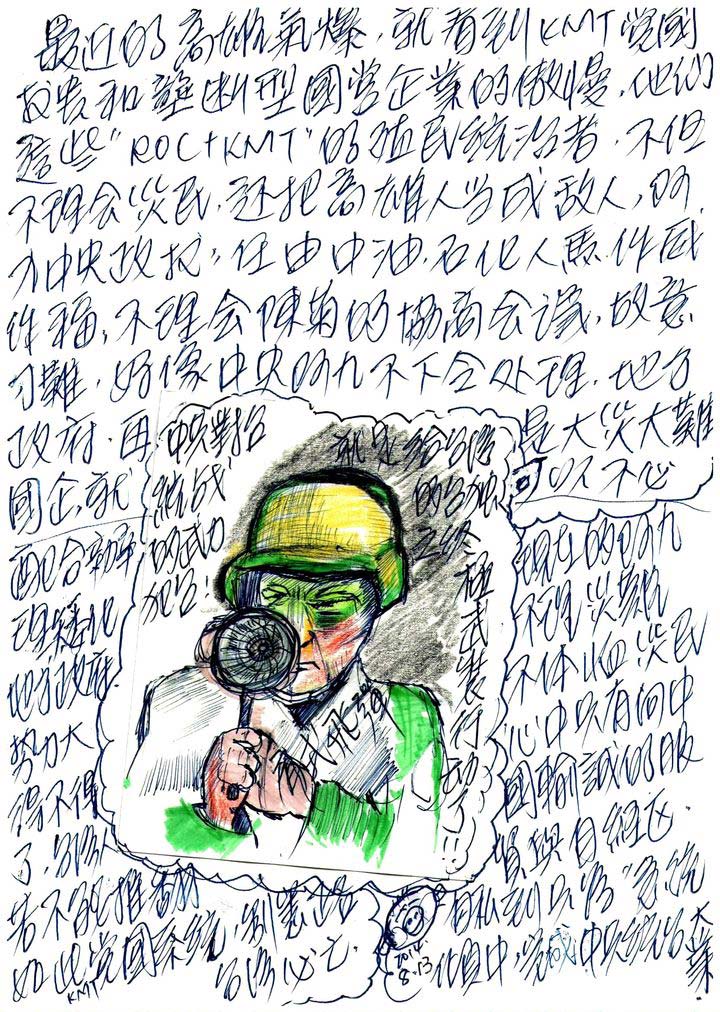 最近的高雄氣爆,就看到KMT党國
政農和壟断型國营企業的傲慢,他们
這些"ROC+KMT"的殖民統治者,不但
不理会災民,还把高雄人当成敵人,阿
九中央政权,任由中油.石化人馬作威
作福,不理会陳菊的協商会議,故意
刁難,好像中央阿九不下令处理,地方
政府.再
國企,就
配合
理矮化
地方政府.
勢力大
得不得
了,台湾人
若不能推翻
如此党國系統,制憲正名
KMT 台湾必亡.
中共對台
統战
的武力
犯台!
就是給台湾
的台独
之终
極武裝行動了!
是大災大難
可以不必
現在的阿九
不理災難
不体恤災民
心中只有向中
國輸誠的服
貿與自經区.
自私到只為"急統
化員中,党成中共統台大業.
2014.
8.13